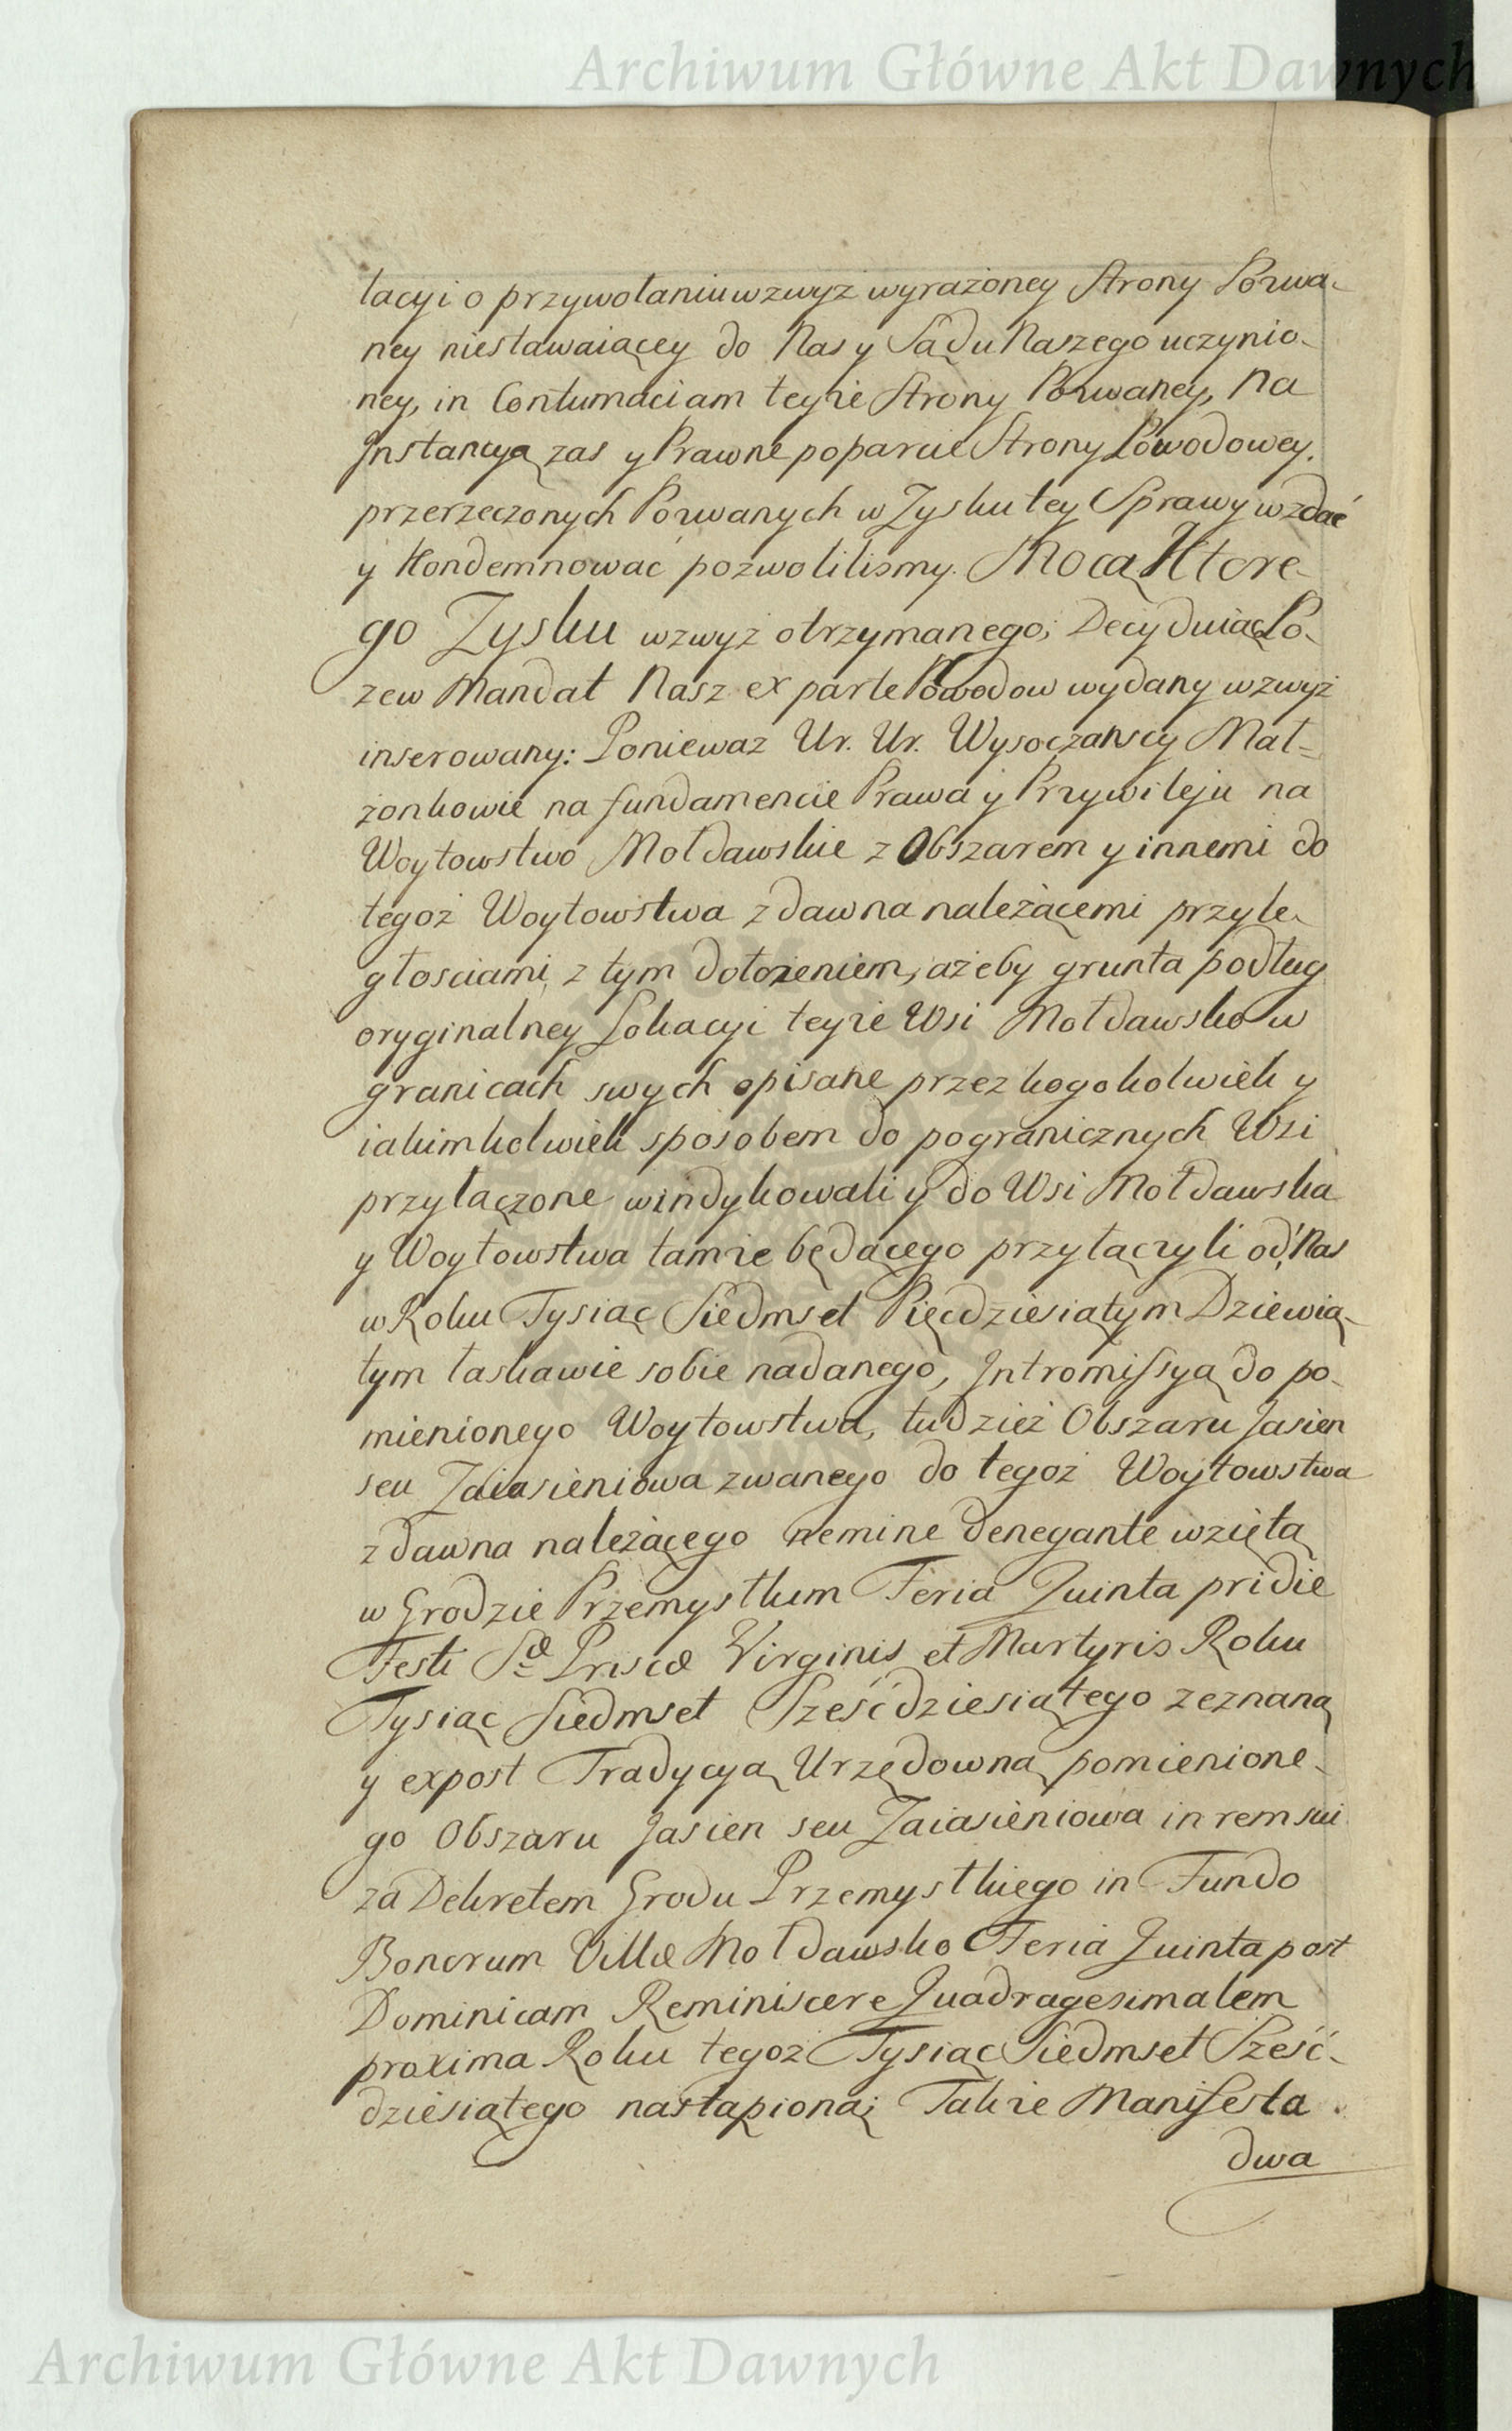 Archiwum Główne Akt Dawnych
lacyi o przywołaniu wzwyż wyrażoney Strony Pozwa-
ney niestawaiącey do Nas y Sądu Naszego uczynio-
ney, in Contumaciam teyże Strony Pozwaney, Na
Instancyą zas y Prawne poparcie Strony Powodowey.
przerzeczonych Pozwanych w Zysku tey Sprawy wzdać
y Kondemnować pozwolilismy. Mocą Ktore-
go Zysku wzwyż otrzymanego; Decyduiąc Po-
zew Mandat Nasz ex parte Powodow wydany wzwyż
inserowany: Poniewaz Ur. Ur. Wysoczanscy Mał-
żonkowie na fundamencie Prawa y Przywileju na
Woytowstwo Mołdawskie z Obszarem y innemi do
tegoż Woytowstwa zdawna należącemi przyle-
głosciami, z tym dołożeniem, ażeby grunta podług
oryginalney Lokacyi teyże Wsi Mołdawsko w
granicach swych opisane przez kogokolwiek y
iakimkolwiek sposobem do pogranicznych Wsi
przyłączone windykowali y do Wsi Mołdawska
y Woytowstwa tamże będącego przyłączyli od Nas
w Roku Tysiąc Siedmset Pięcdziesiątym Dziewią-
tym łaskawie sobie nadanego, Intromissyą do po-
mienionego Woytowstwa, tudzież Obszaru Jasien
seu Zaiasieniowa zwanego do tegoż Woytowstwa
zdawna należącego nemine denegante wziętą
w Grodzie Przemysłkim Feria Quinta pridie
Festi Sæ Priscæ Virginis et Martyris Roku
Tysiąc Siedmset Sześćdziesiątego zeznaną
y expost Tradycyą Urzędowną pomienione-
go Obszaru Jasien seu Zaiasieniowa in rem sui
za Dekretem Grodu Przemysłkiego in Fundo
Bonorum Villæ Mołdawsko Feria Quinta post
Dominicam Reminiscere Quadragesimalem
proxima Roku tegoż Tysiąc Siedmset Sześć-
dziesiątego nastąpioną; Także Manifesta
dwa
Archiwum Główne Akt Dawnych